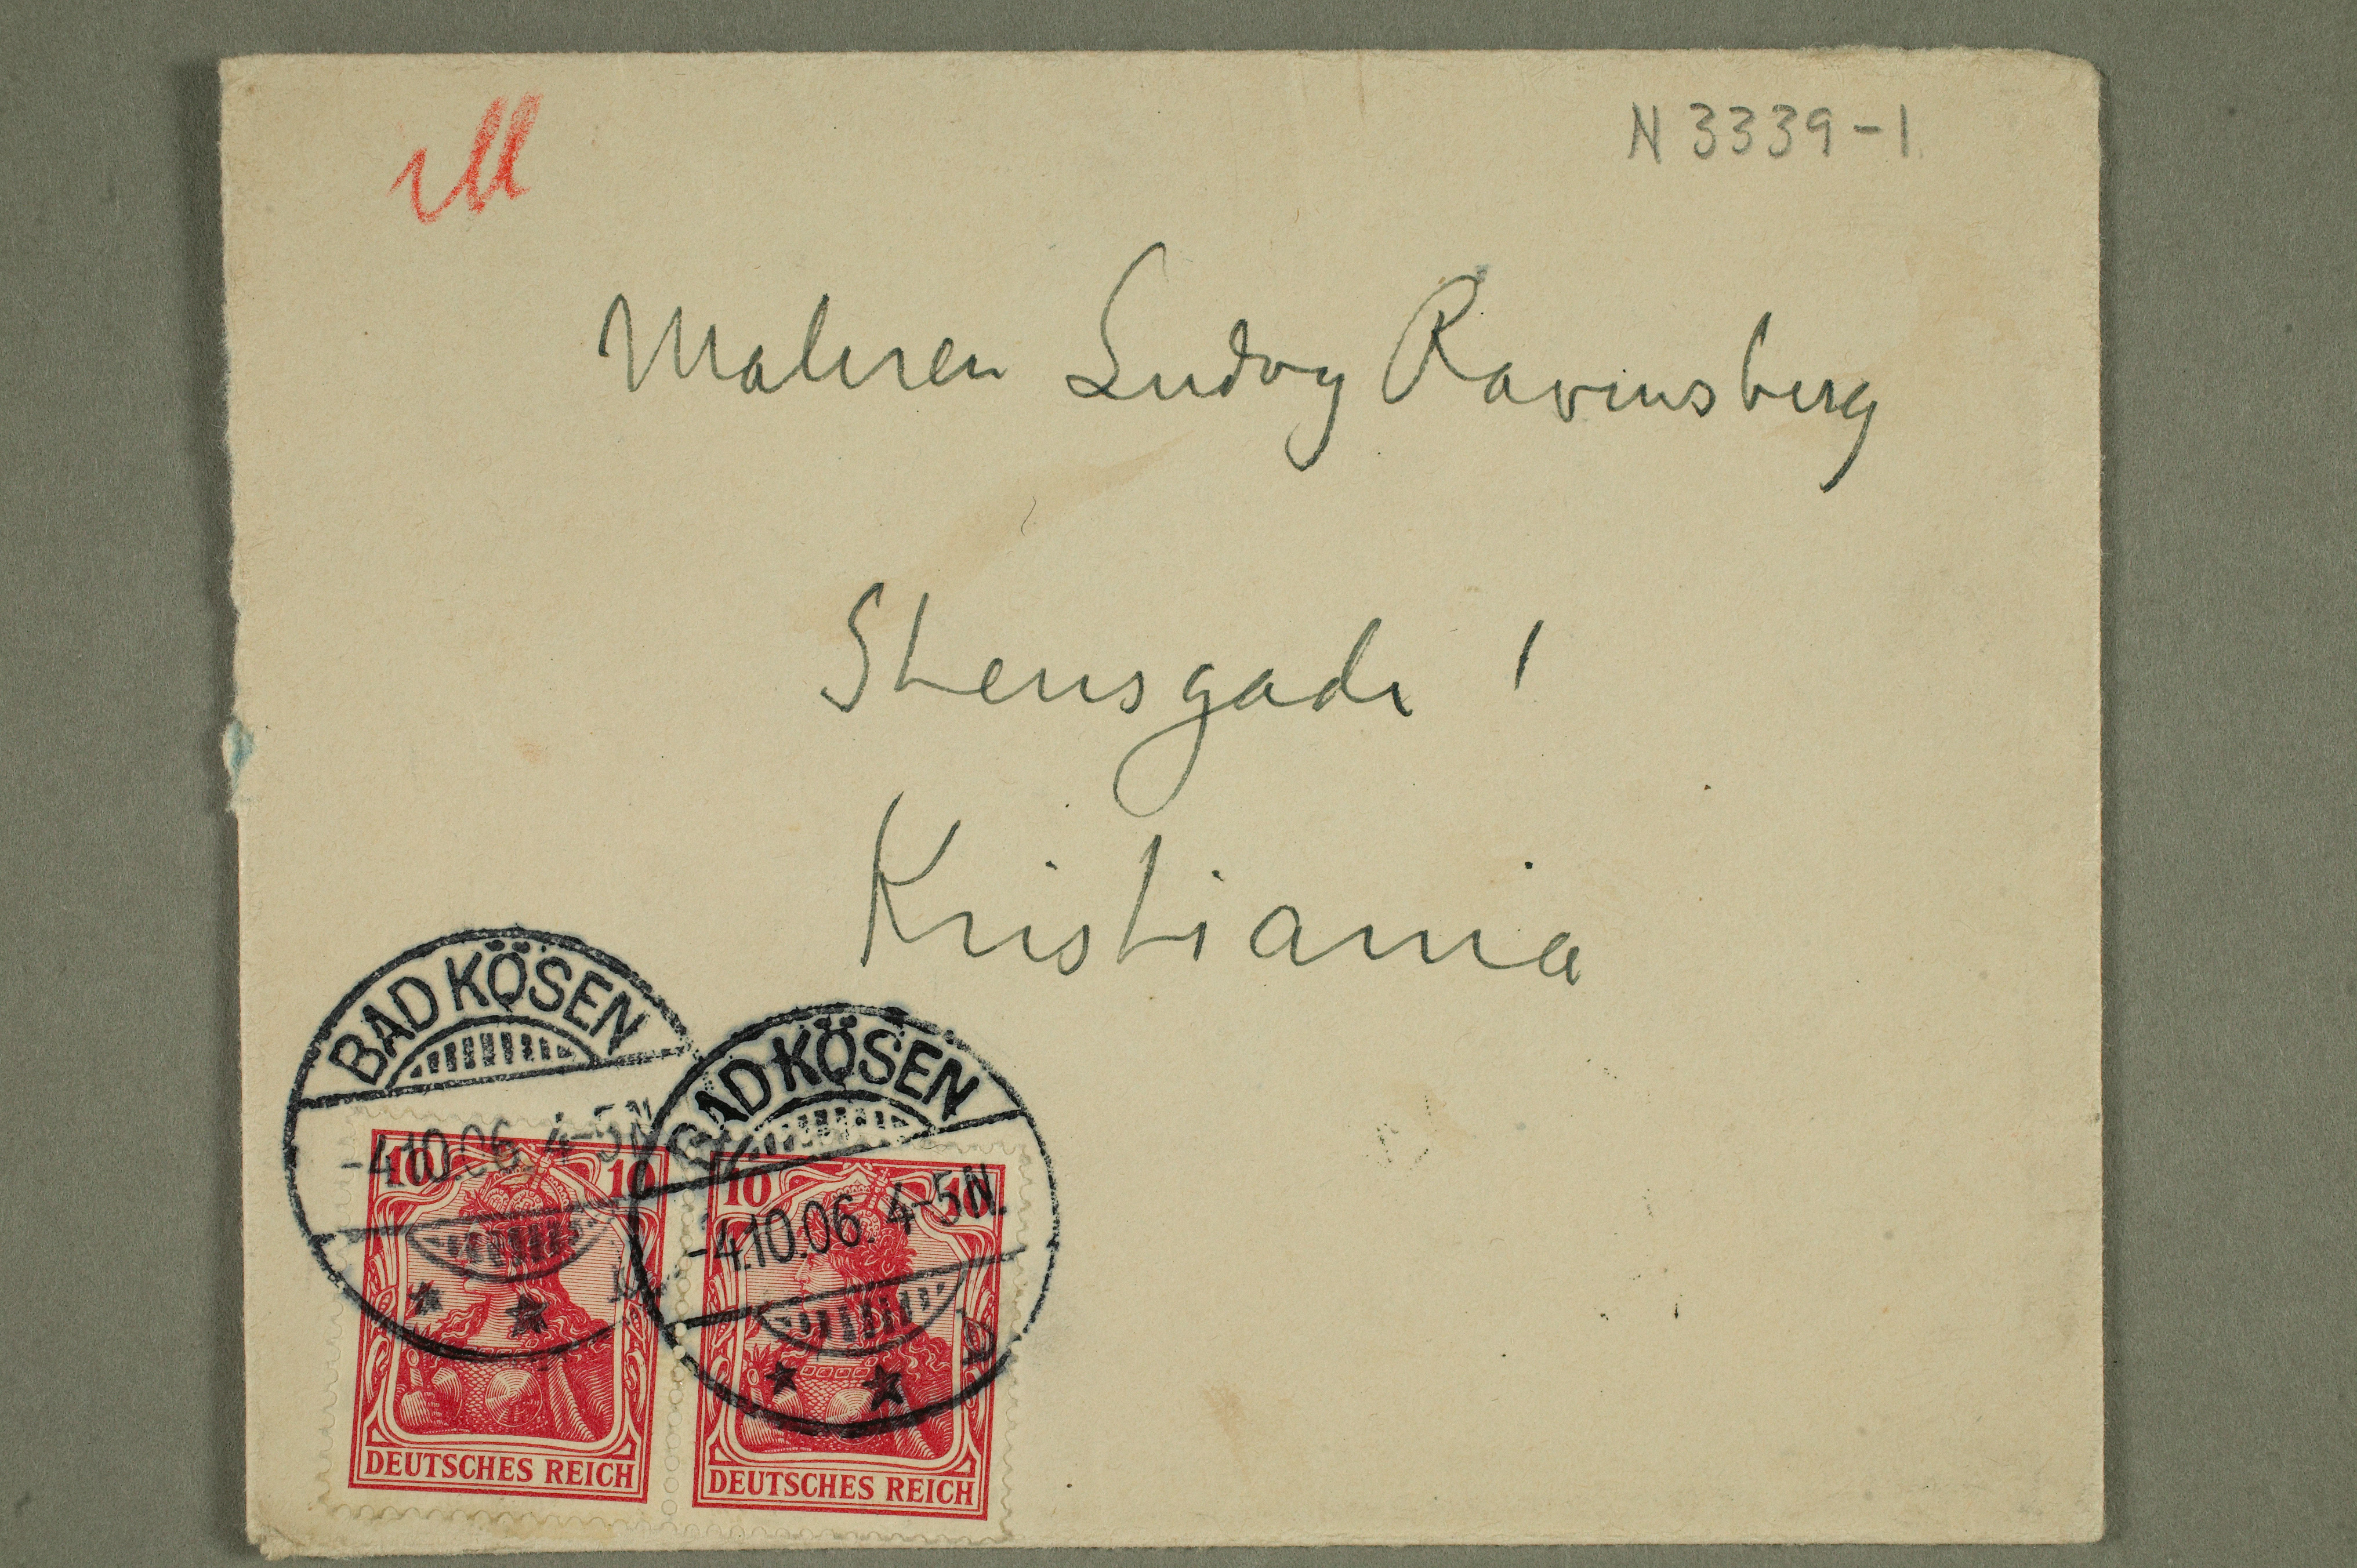 M
N 3339-1
Maleren Ludvig Ravensberg
Stensgade 1
Kristiania
BAD KÖSEN
-4.10.06. 4-5N.
BAD KÖSEN
-4.10.06. 4-5N.
b
10 10
DEUTSCHES REICH
10 10
DEUTSCHES REICH